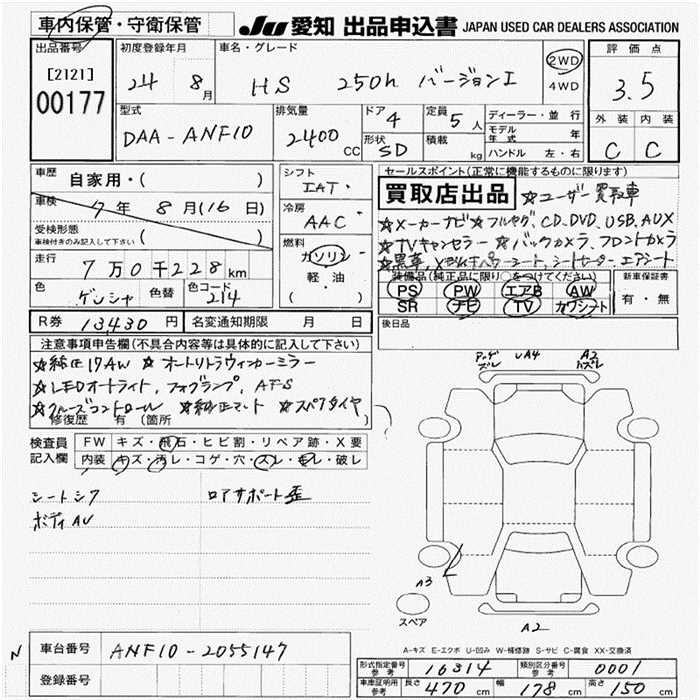 車内保管・守衛保管
JU 愛知 出品申込書 JAPAN USED CAR DEALERS ASSOCIATION
出品番号
[2121]
00177
初度登録年月
24 8月
車名・グレード
HS 250h バージョンI
2WD
4WD
評価点
3.5
型式
DAA-ANF10
排気量
2400 CC
ドア 4
形状 SD
定員 5人
積載 kg
ディーラー・並行
モデル年式 年
ハンドル 左・右
外装 内装
C C
車歴 自家用・( )
車検 7年 8月(16日)
受検形態
車検付きのみ記入して下さい ( )
走行 7万0千228km
色 ゲンシャ 色替 色コード 214
シフト
IAT
冷房
AAC
燃料
ガソリン
軽・油
( )
セールスポイント(正常に機能するものに限ります)
買取店出品 ☆ユーザー買取車
☆メーカーナビ☆フルセグ、CD、DVD、USB、AUX
☆TVキャンセラー ☆バックカメラ、フロントカメラ
☆黒革、シートヒーター、エアシート
装備品(純正品に限り○をつけてください)
PS PW エアB AW
SR ナビ TV カワシート
新車保証書
有・無
R券 13430円 名変通知期限 月 日
後日品
注意事項申告欄(不具合内容等は具体的に記入して下さい)
☆純正17AW ☆オートリトラウィンカーミラー
☆LEDオートライト、フォグランプ、AFS
☆クルーズコントロール ☆純正マット ☆スペアタイヤ
修復歴 有(箇所 )
検査員記入欄
FW キズ・飛石・ヒビ割・リペア跡・X要
内装 キズ・汚レ・コゲ・穴・スレ・モレ・破レ
シートシワ ロアサポート歪
ボディAU
UA4 A2
A3
スペア
A2
A-キズ E-エクボ U-凹み W-補修跡 S-サビ C-腐食 XX-交換済
N
車台番号 ANF10-2055147
登録番号
形式指定番号 参考 16314 類別区分番号 参考 0001
車庫証明用 参考 長さ 470cm 幅 178cm 高さ 150cm